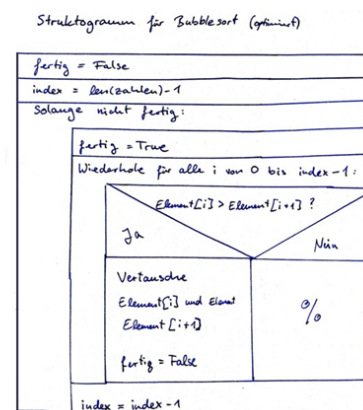 Struktogramm für Bubblesort (optimiert)
fertig = False
index = len(zahlen)-1
Solange nicht fertig:
fertig = True
Wiederhole für alle i von 0 bis index-1:
Element[i] > Element[i+1] ?
Ja
Nein
Vertausche
Element[i] und Element
Element [i+1]
%
fertig = False
index = index - 1